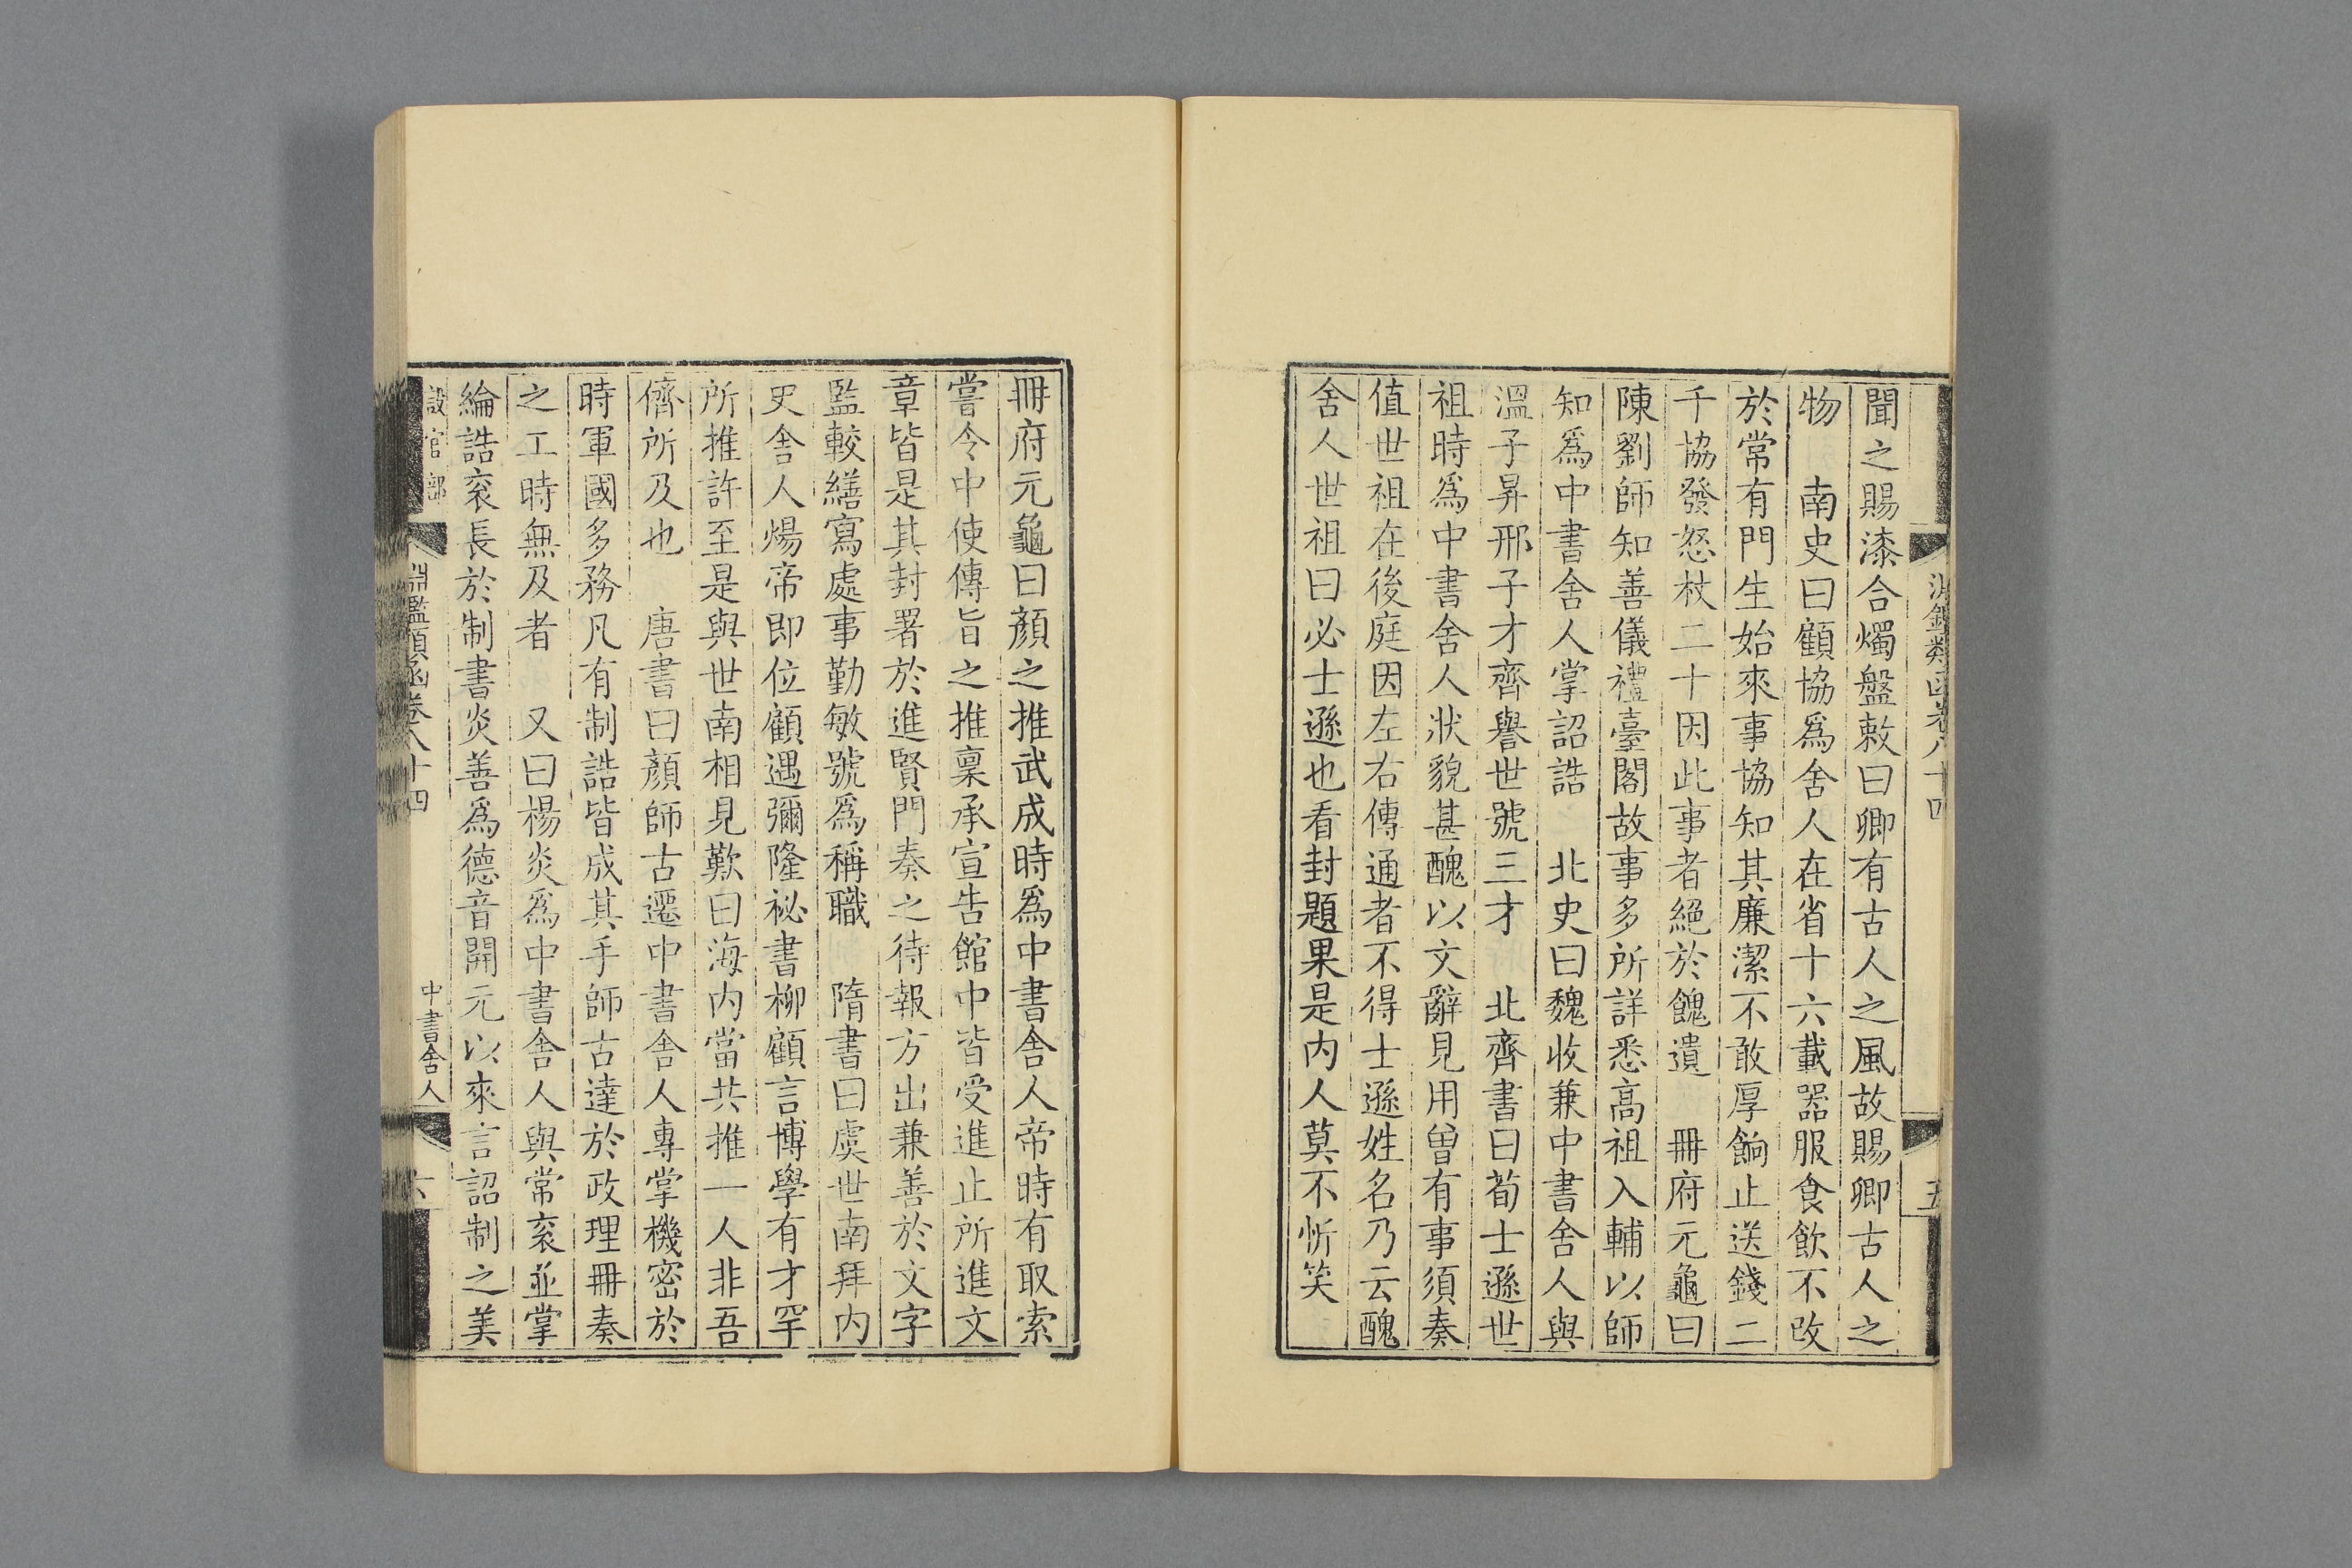 淵鑑類函卷八十四
五
聞之賜漆合燭盤敕曰卿有古人之風故賜卿古人之
物　南史曰顧協爲舍人在省十六載器服食飲不改
於常有門生始來事協知其廉潔不敢厚餉止送錢二
千協發怒杖二十因此事者絕於餽遺　冊府元龜曰
陳劉師知善儀禮臺閣故事多所詳悉高祖入輔以師
知爲中書舍人掌詔誥　北史曰魏收兼中書舍人與
溫子昇邢子才齊譽世號三才　北齊書曰荀士遜世
祖時爲中書舍人狀貌甚醜以文辭見用曾有事須奏
值世祖在後庭因左右傳通者不得士遜姓名乃云醜
舍人世祖曰必士遜也看封題果是內人莫不忻笑
冊府元龜曰顏之推武成時爲中書舍人帝時有取索
嘗令中使傳旨之推稟承宣告館中皆受進止所進文
章皆是其封署於進賢門奏之待報方出兼善於文字
監較繕寫處事勤敏號爲稱職　隋書曰虞世南拜內
史舍人煬帝即位顧遇彌隆祕書柳顧言博學有才罕
所推許至是與世南相見歎曰海內當共推一人非吾
儕所及也　唐書曰顏師古遷中書舍人專掌機密於
時軍國多務凡有制誥皆成其手師古達於政理冊奏
之工時無及者　又曰楊炎爲中書舍人與常袞並掌
綸誥袞長於制書炎善爲德音開元以來言詔制之美
設官部
淵鑑類函卷八十四
中書舍人
六